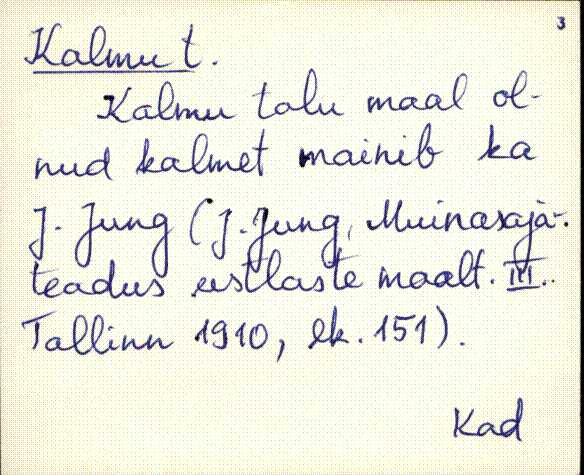 3
Kalmu t.
Kalmu talu maal ol-
nud kalmet mainib ka
J. Jung (J. Jung, Muinasaja-
teadus eestlaste maalt. III.
Tallinn 1910, lk. 151).
Kad